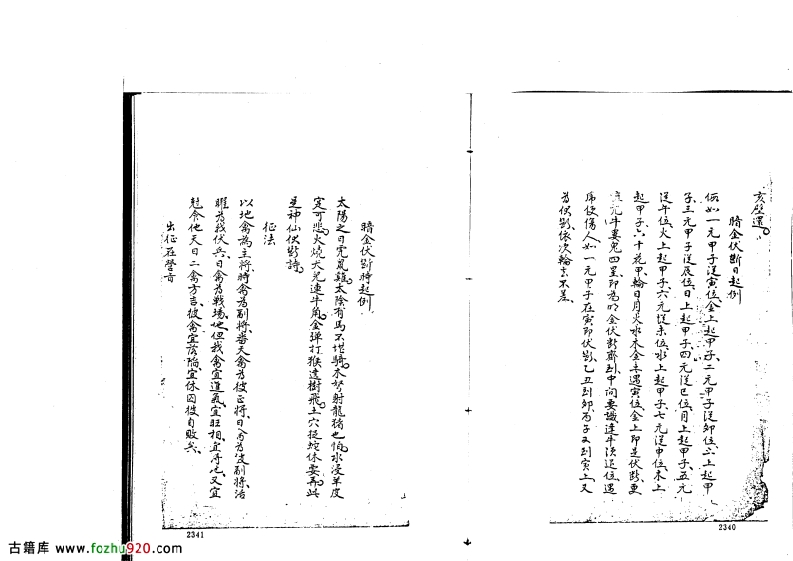 亥壁還
暗金伏斷日起例
假如一元甲子從寅位金上起甲子二元甲子從卯位六上起甲
子三元甲子從辰位日上起甲子四元從巳位月上起甲子五元
從午位火上起甲子六元從未位水上起甲子七元從申位木上
起甲子六十花甲輪日月火水木金土遇寅位金上即是伏斷更
元牛婁鬼四星即為暗金伏斷齊到中間要識逢牛須退位遇
虎便傷人如一元甲子在寅即伏斷乙丑到卯丙子又到寅上又
為伏斷依次輪去不差
2340
暗金伏斷時起例
太陽之日兔鼠雞太陰有馬不堪騎木弩射龍豬也怕水浸羊皮
定可悲火燒犬兒連牛角金弹打猴遶樹飛土穴挺蛇休要弄此
是神仙伏斷詩
征法
以地禽為主將時禽為副將番天禽為彼正將日禽為彼副將活
曜為我伏兵日禽為戰場地但我禽宜道氣宜旺相宜得地又宜
克令他天日二禽方吉彼禽宜陷宜休囚彼自敗矣
出征在營音
2341
古籍库 www.fozhu920.com